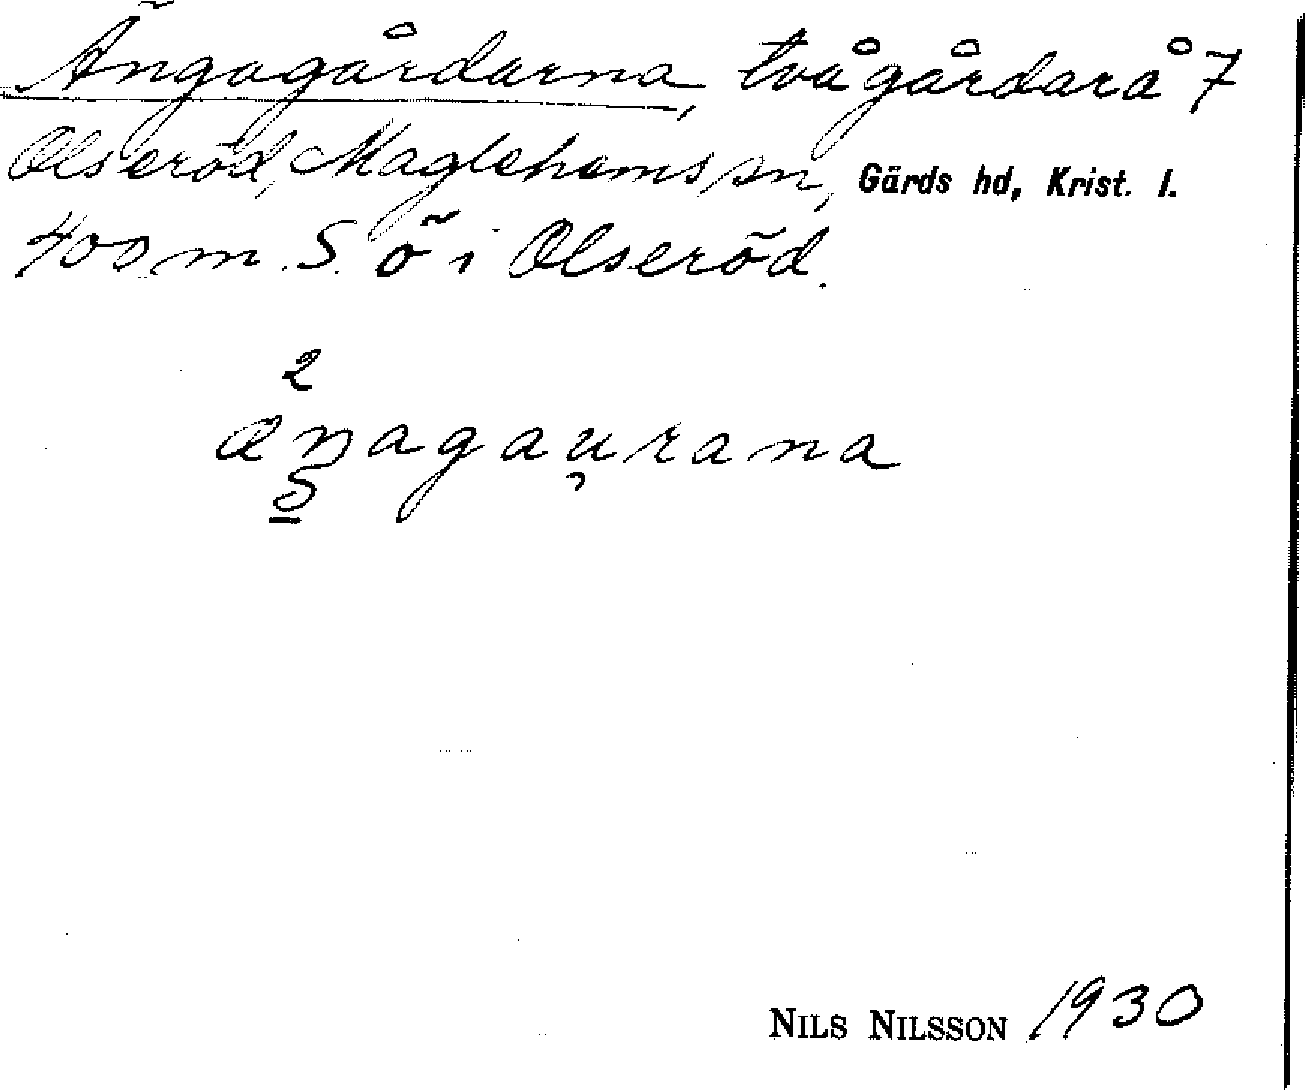 Ängagårdarna, två gårdar å 7
Olseröd, Maglehems sn, Gärds hd, Krist. l.
400 m. S. ö i Olseröd.
2
aŋagau̯rana
5
NILS NILSSON 1930